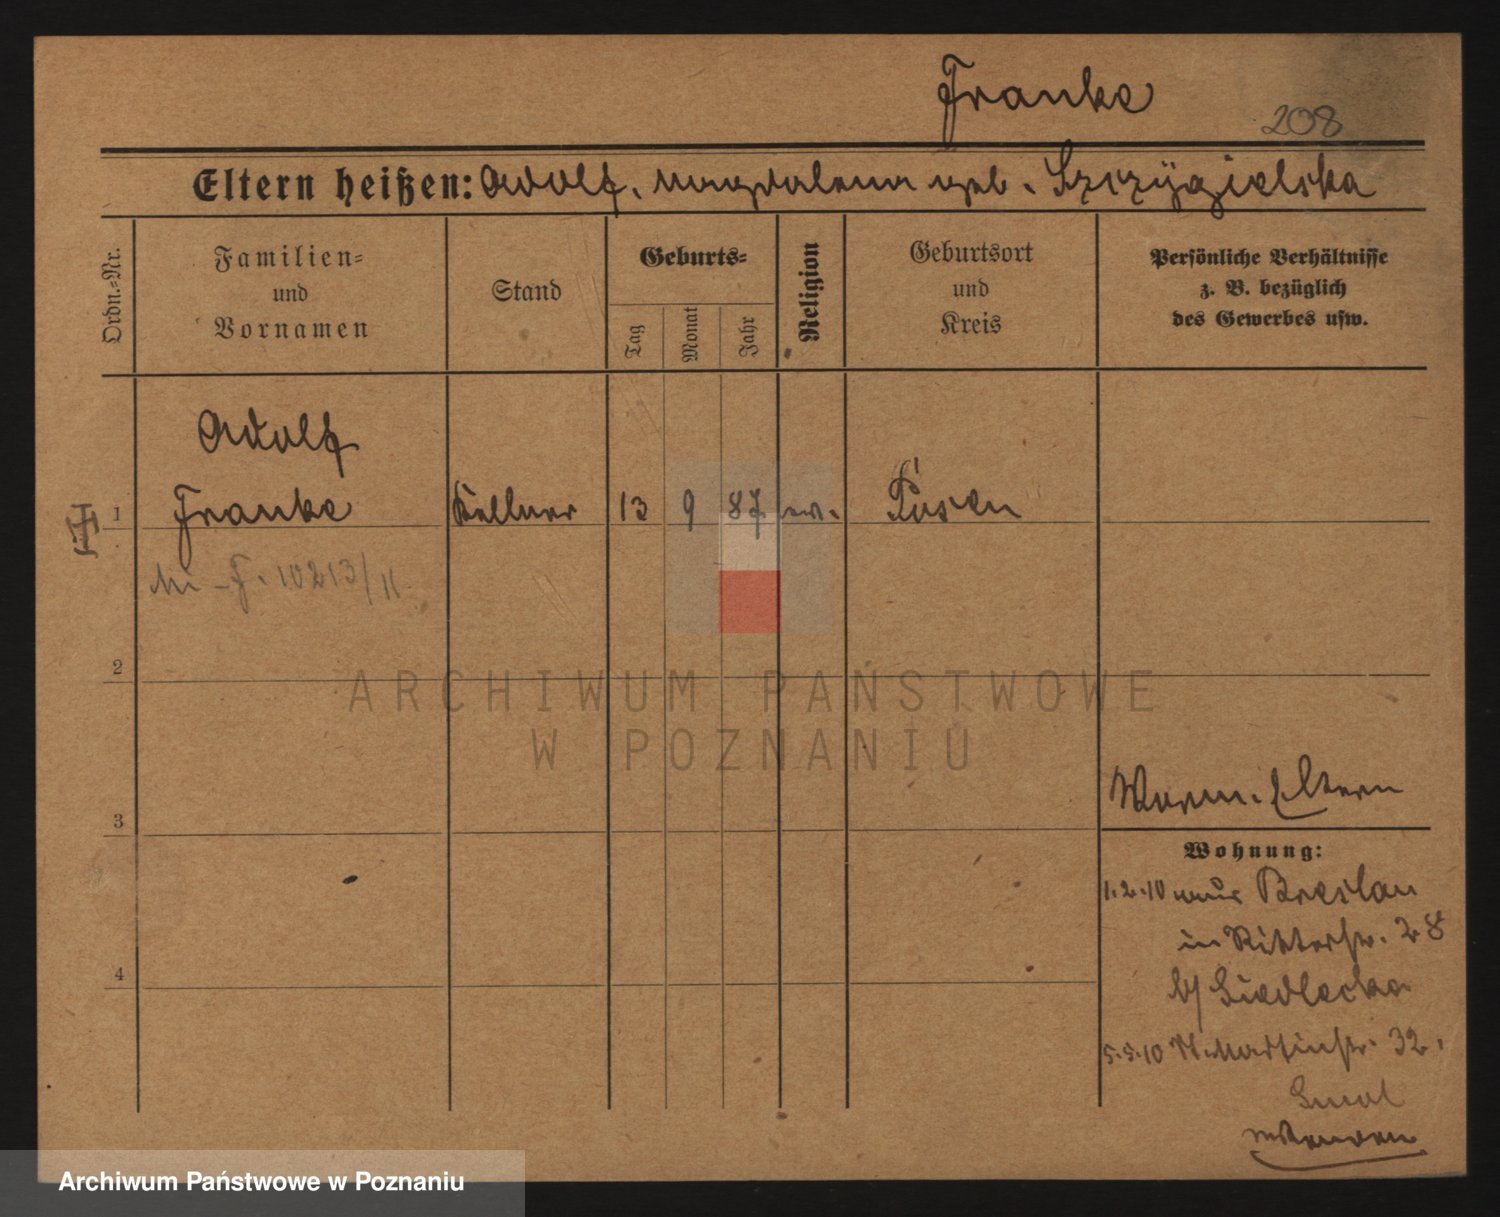 Franke
208
Eltern heißen: Adolf, Magdalena geb. Szczÿgielska
Ordn.-Nr.
Familien-
und
Vornamen
Stand
Geburts-
Tag
Monat
Jahr
Religion
Geburtsort
und
Kreis
Persönliche Verhältnisse
z. B. bezüglich
des Gewerbes usw.
Adolf
1 Franke Kellner 13 9 87 ev. Posen
F. 10213/11
2
ARCHIWUM PAŃSTWOWE
W POZNANIU
3
Eltern
Wohnung:
1.2.10 aus Breslau
in Ritterstr. 28
b/ Siedlecka
5.5.10 St. Martinstr. 32.
wenden
4
Archiwum Państwowe w Poznaniu